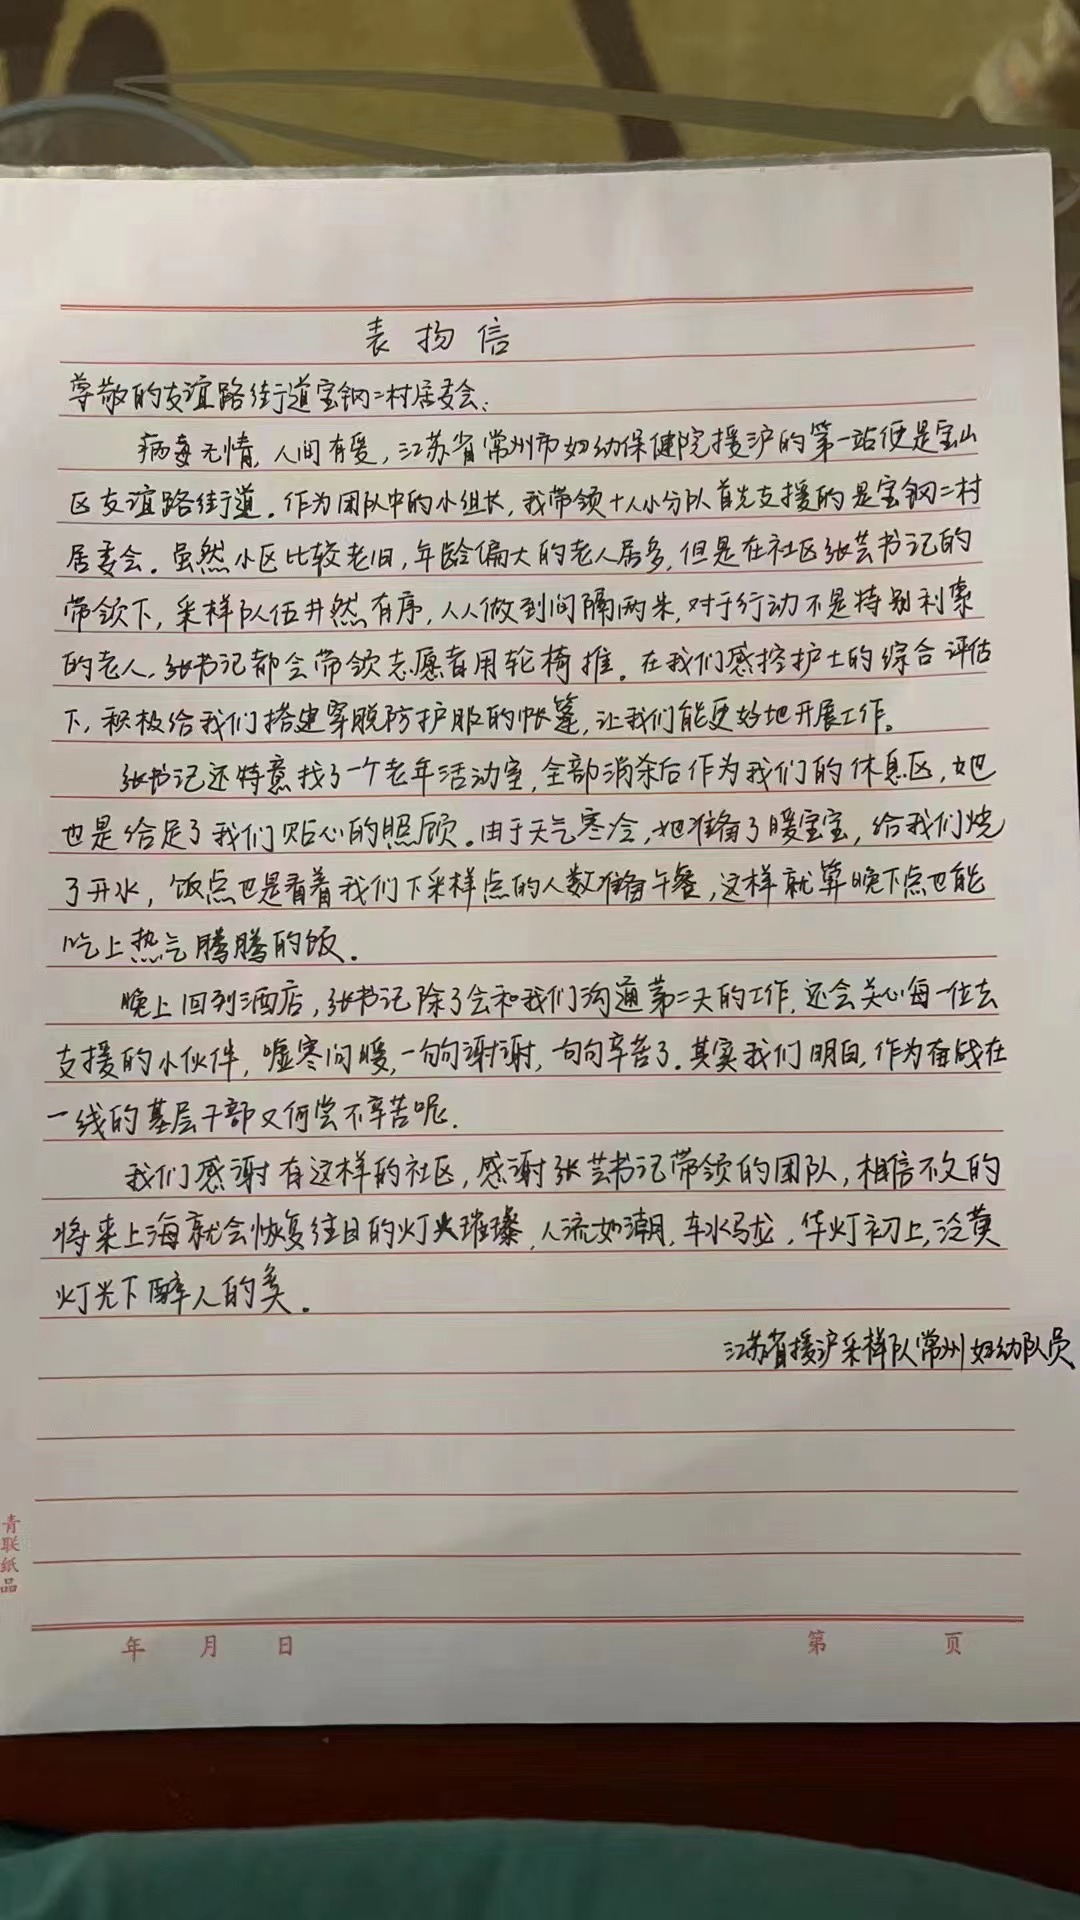 表扬信
尊敬的友谊路街道宝钢二村居委会:
病毒无情,人间有爱,江苏省常州市妇幼保健院援沪的第一站便是宝山
区友谊路街道。作为团队中的小组长,我带领十人小分队首先支援的是宝钢二村
居委会。虽然小区比较老旧,年龄偏大的老人居多,但是在社区张芸书记的
带领下,采样队伍井然有序,人人做到间隔两米,对于行动不是特别利索
的老人,张书记都会带领志愿者用轮椅推。在我们感控护士的综合评估
下,积极给我们搭建穿脱防护服的帐篷,让我们能更好地开展工作。
张书记还特意找了一个老年活动室,全部消杀后作为我们的休息区,她
也是给足了我们贴心的照顾。由于天气寒冷,她准备了暖宝宝,给我们烧
了开水,饭点也是看着我们下采样点的人数准备午餐,这样就算晚下点也能
吃上热气腾腾的饭。
晚上回到酒店,张书记除了会和我们沟通第二天的工作,还会关心每一位去
支援的小伙伴,嘘寒问暖,一句句谢谢,句句辛苦了。其实我们明白,作为奋战在
一线的基层干部又何尝不辛苦呢。
我们感谢有这样的社区,感谢张芸书记带领的团队,相信不久的
将来上海就会恢复往日的灯火璀璨,人流如潮,车水马龙,华灯初上,泛黄
灯光下醉人的美。
江苏省援沪采样队常州妇幼队员
青联纸品
年 月 日 第 页